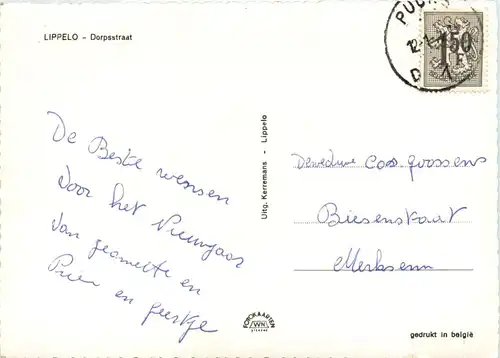 LIPPELO - Dorpsstraat
PUU
12-1
D 1
1F50
De Beste wensen
Voor het Nieuwjaar
Van geomette en
Prien en geertje
Uitg. Kerremans - Lippelo
Deweduwe Cos goossens
Biesenstraat
Merksem
FOTOKAARTEN
WN
gedrukt in belgië